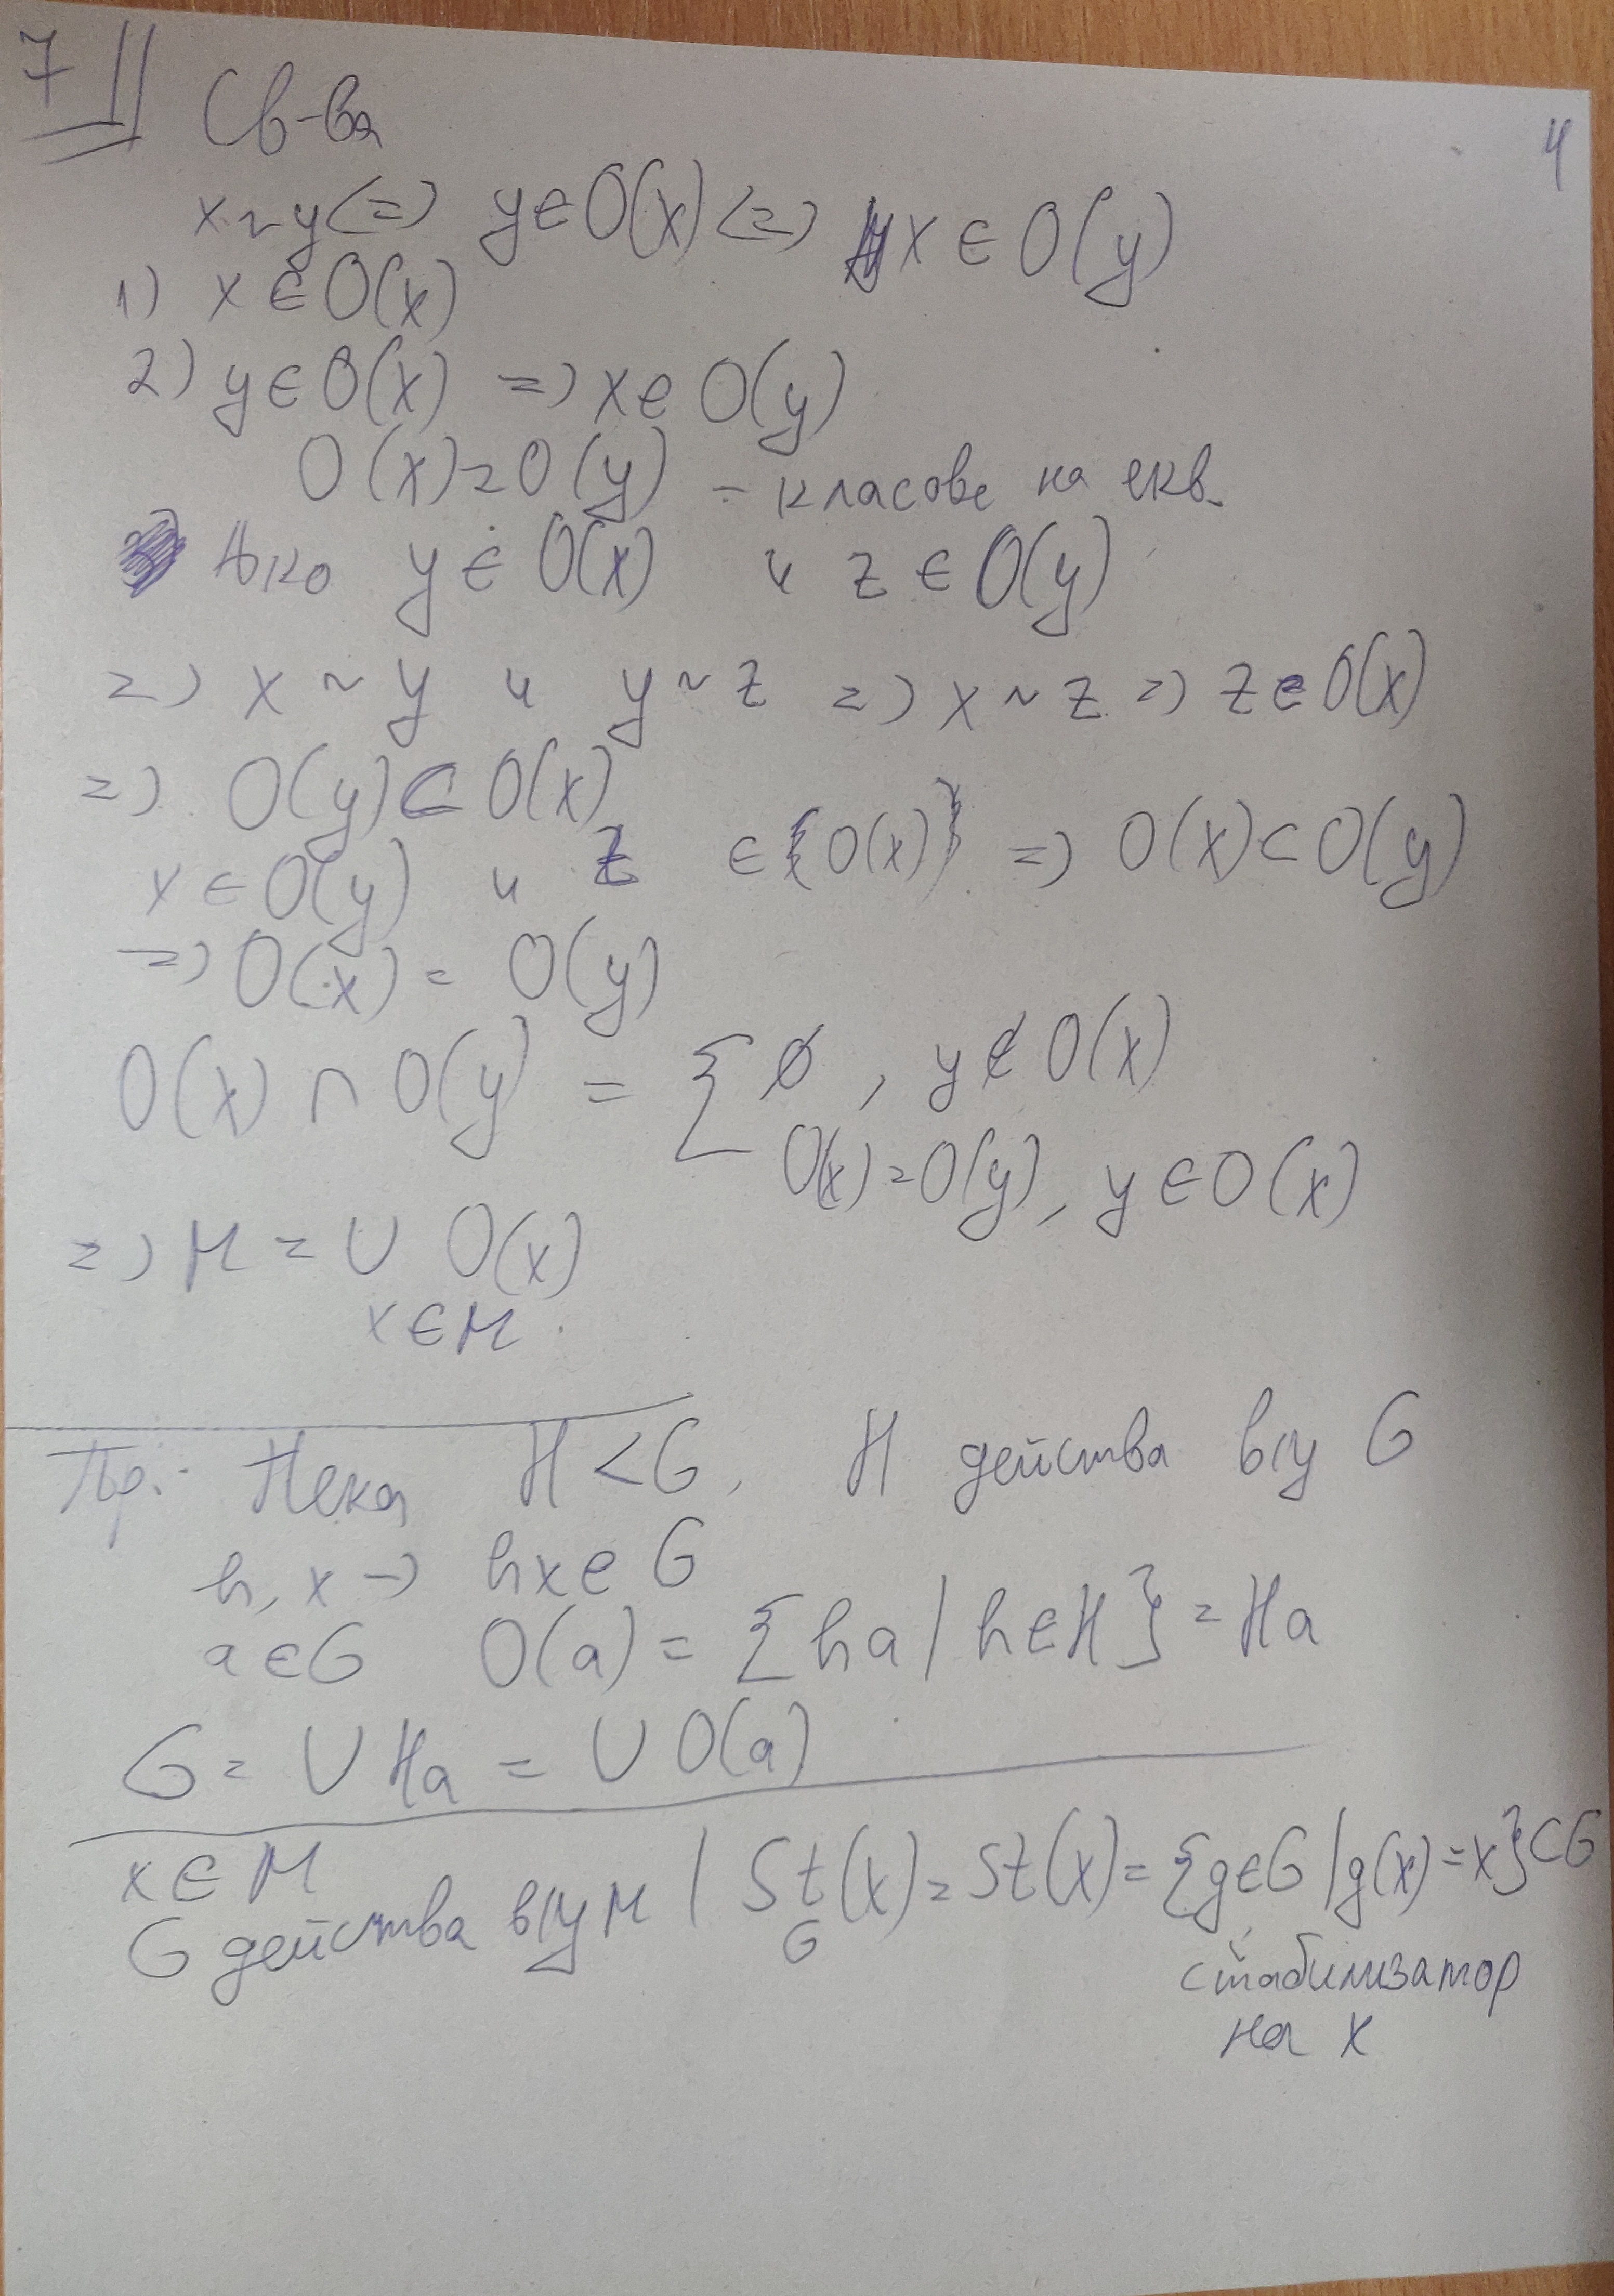 7 || Св-ва
4
x ~ y <=> y ∈ O(x) <=> x ∈ O(y)
1) x ∈ O(x)
2) y ∈ O(x) => x ∈ O(y)
O(x) = O(y) - класове на екв.
Ако y ∈ O(x) и z ∈ O(y)
=> x ~ y и y ~ z => x ~ z => z ∈ O(x)
=> O(y) ⊂ O(x)
x ∈ O(y) и z ∈ {O(x)} => O(x) ⊂ O(y)
=> O(x) = O(y)
O(x) ∩ O(y) = { ∅ , y ∉ O(x)
O(x) = O(y), y ∈ O(x)
=> M = ∪ O(x)
x ∈ M
Пр.: Нека H < G, H действа в/у G
h, x → hx ∈ G
a ∈ G O(a) = {ha | h ∈ H} = Ha
G = ∪ Ha = ∪ O(a)
x ∈ M
G действа в/у M | St_G(x) = St(x) = {g ∈ G | g(x) = x} ⊂ G
стабилизатор
на x